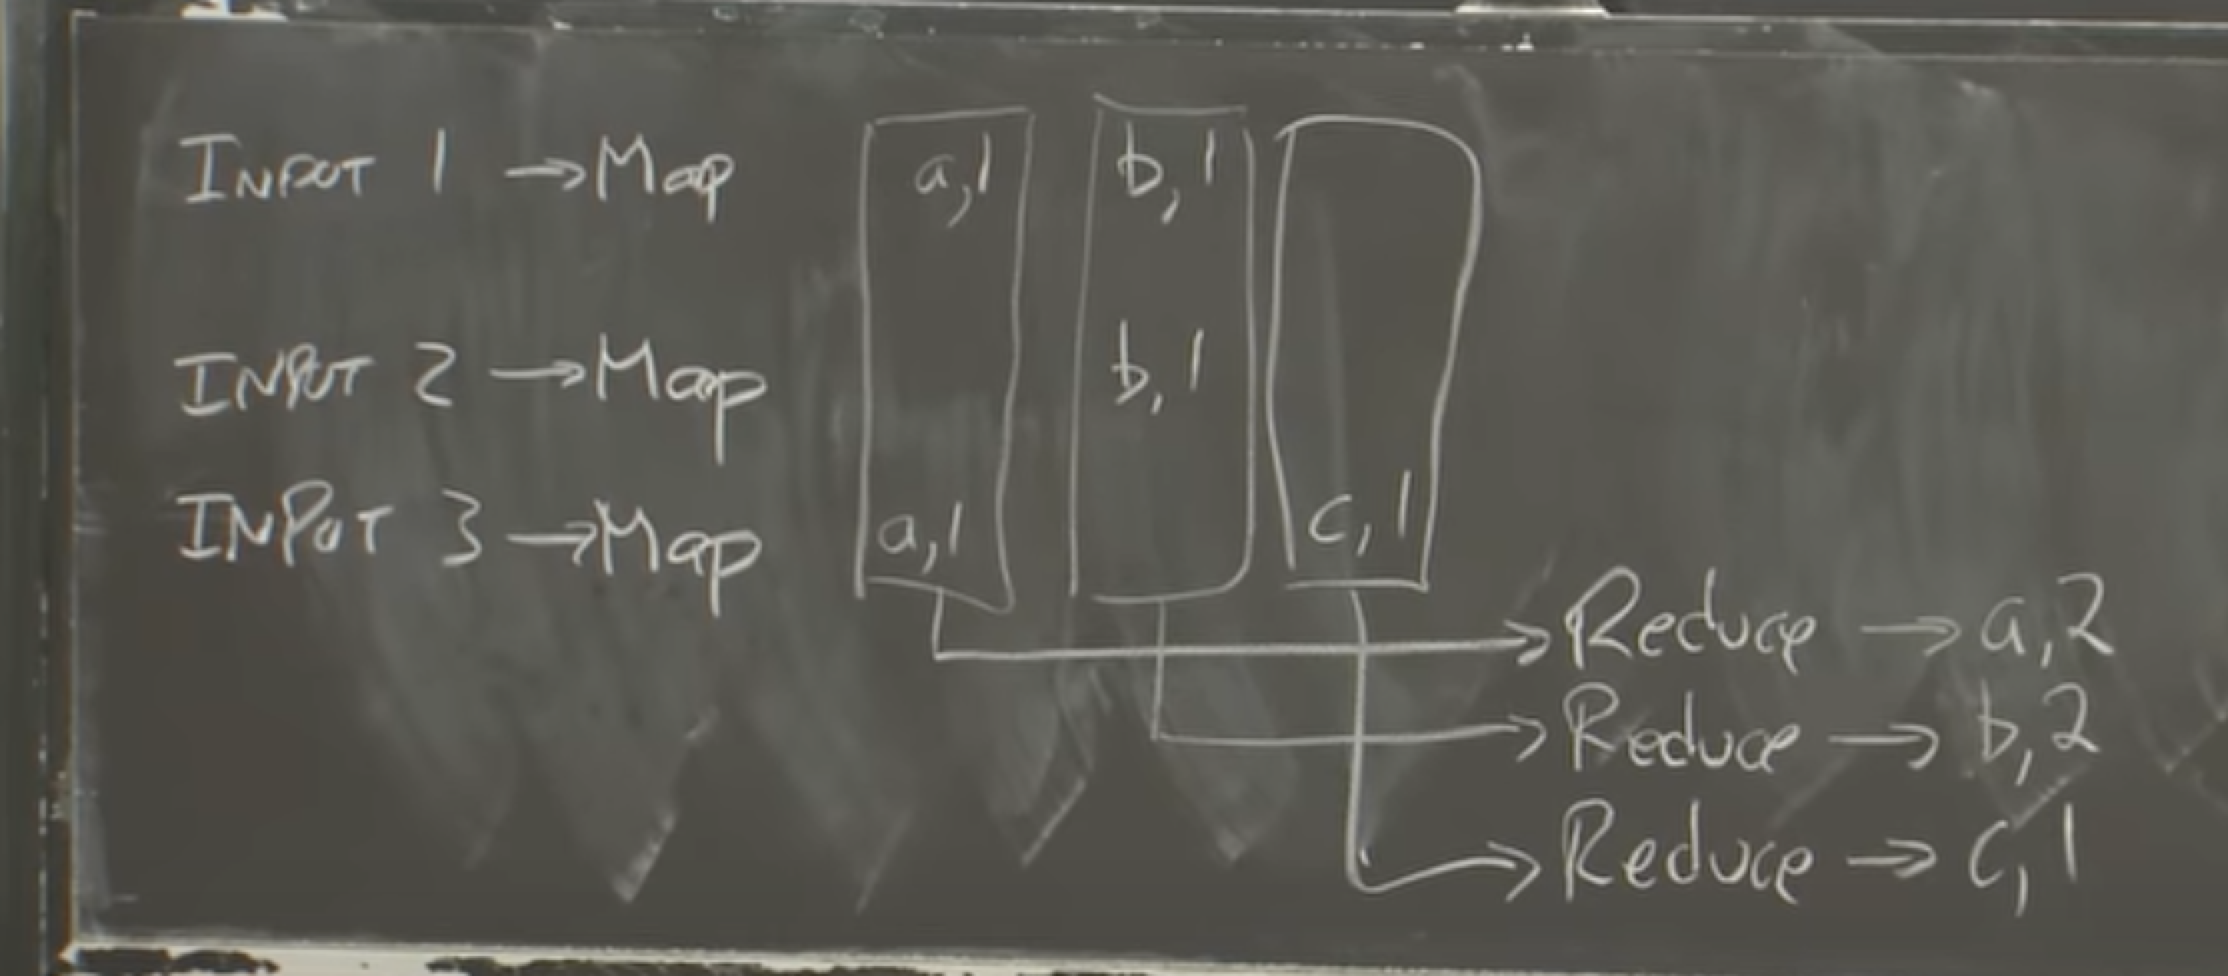 INPUT 1 →Map a,1 b,1
INPUT 2 →Map b,1
INPUT 3 →Map a,1 c,1
Reduce → a,2
Reduce → b,2
Reduce → c,1